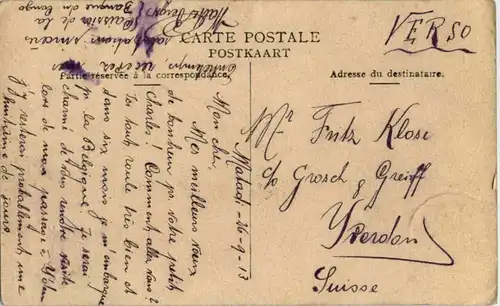 CARTE POSTALE
POSTKAART
VERSO
Partie réservée à la correspondance.
Adresse du destinataire.
Matadi - 26-9-13
Mon cher,
Mes meilleurs vœux
de bonheur pr. votre petit
Charles! Comment allez vous?
Ici tout roule très bien et
dans six mois je m'embarque
pr la Belgique. Je serai
charmé de vous rendre visite
lors de mon passage à
J'y resterai probablement une
huitaine de jours.
recevez mes
salutations
Banque du Congo
Mr Fritz Klose
c/o Grosch & Greiff
Yverdon
Suisse